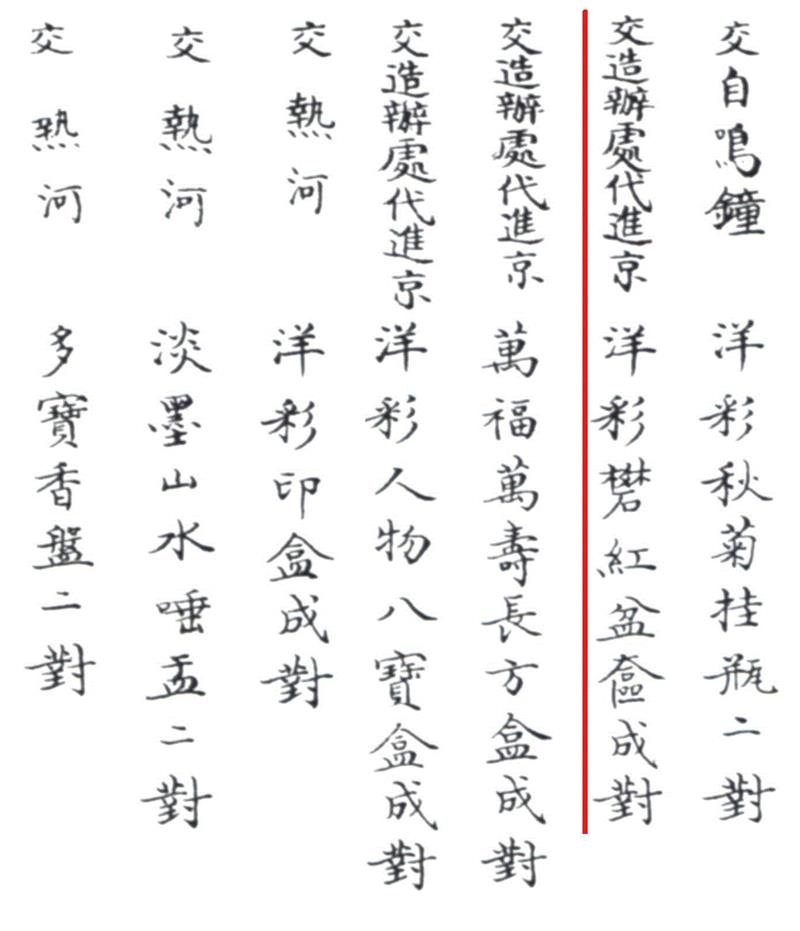 交自鳴鐘 洋彩秋菊挂瓶二對
交造辦處代進京 洋彩礬紅盆奩成對
交造辦處代進京 萬福萬壽長方盒成對
交造辦處代進京 洋彩人物八寶盒成對
交熱河 洋彩印盒成對
交熱河 淡墨山水唾盂二對
交熱河 多寶香盤二對